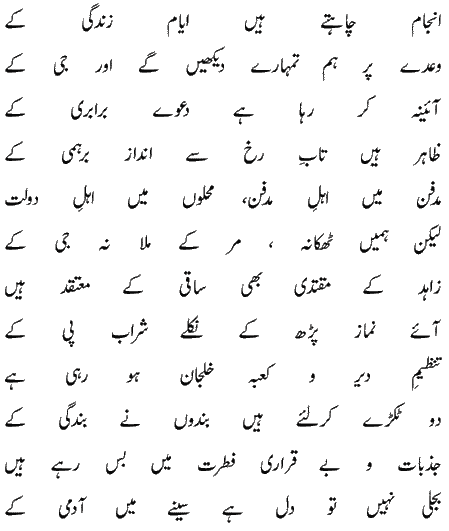 انجام چاہتے ہیں ایام زندگی کے
وعدے پر ہم تمہارے دیکھیں گے اور جی کے
آئینہ کر رہا ہے دعوے برابری کے
ظاہر ہیں تابِ رخ سے انداز برہمی کے
مدفن میں اہلِ مدفن، محلوں میں اہلِ دولت
لیکن ہمیں ٹھکانہ ، مر کے ملا نہ جی کے
زاہد کے مقتدی بھی ساقی کے معتقد ہیں
آئے نماز پڑھ کے نکلے شراب پی کے
تنظیمِ دیر و کعبہ خلجان ہو رہی ہے
دو ٹکڑے کرلئے ہیں بندوں نے بندگی کے
جذبات و بے قراری فطرت میں بس رہے ہیں
بجلی نہیں تو دل ہے سینے میں آدمی کے